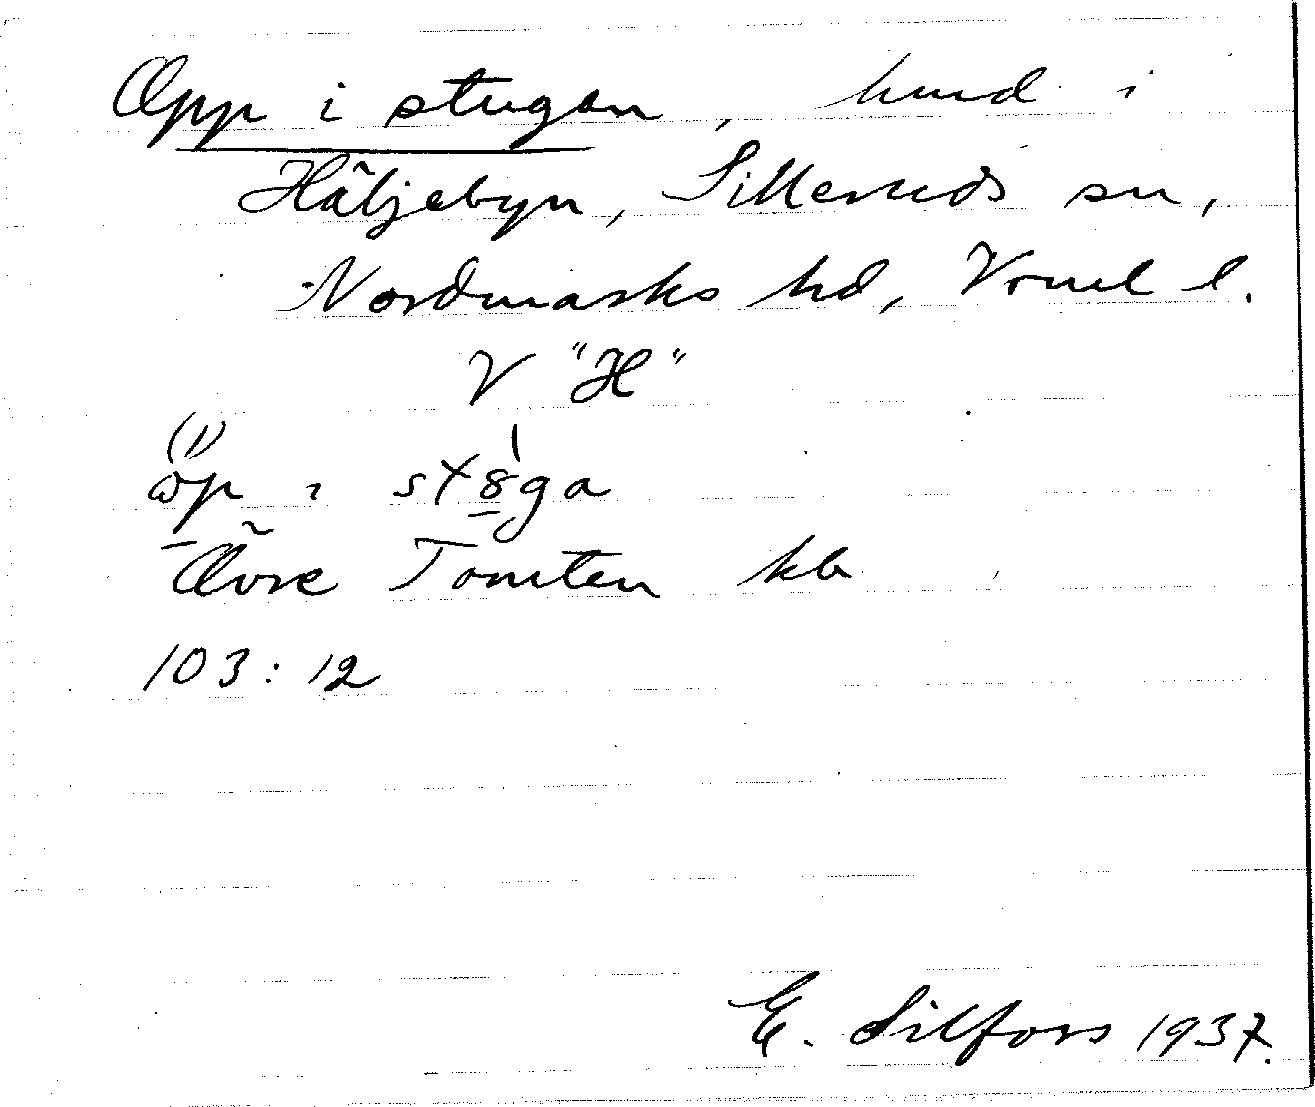 Opp i stugan, hmd i
Häljebyn, Silleruds sn,
Nordmarks hd, Vrml l.
V "H"
öp ı stöga
Övre Tomten kb
103:12
E. Silfors 1937.